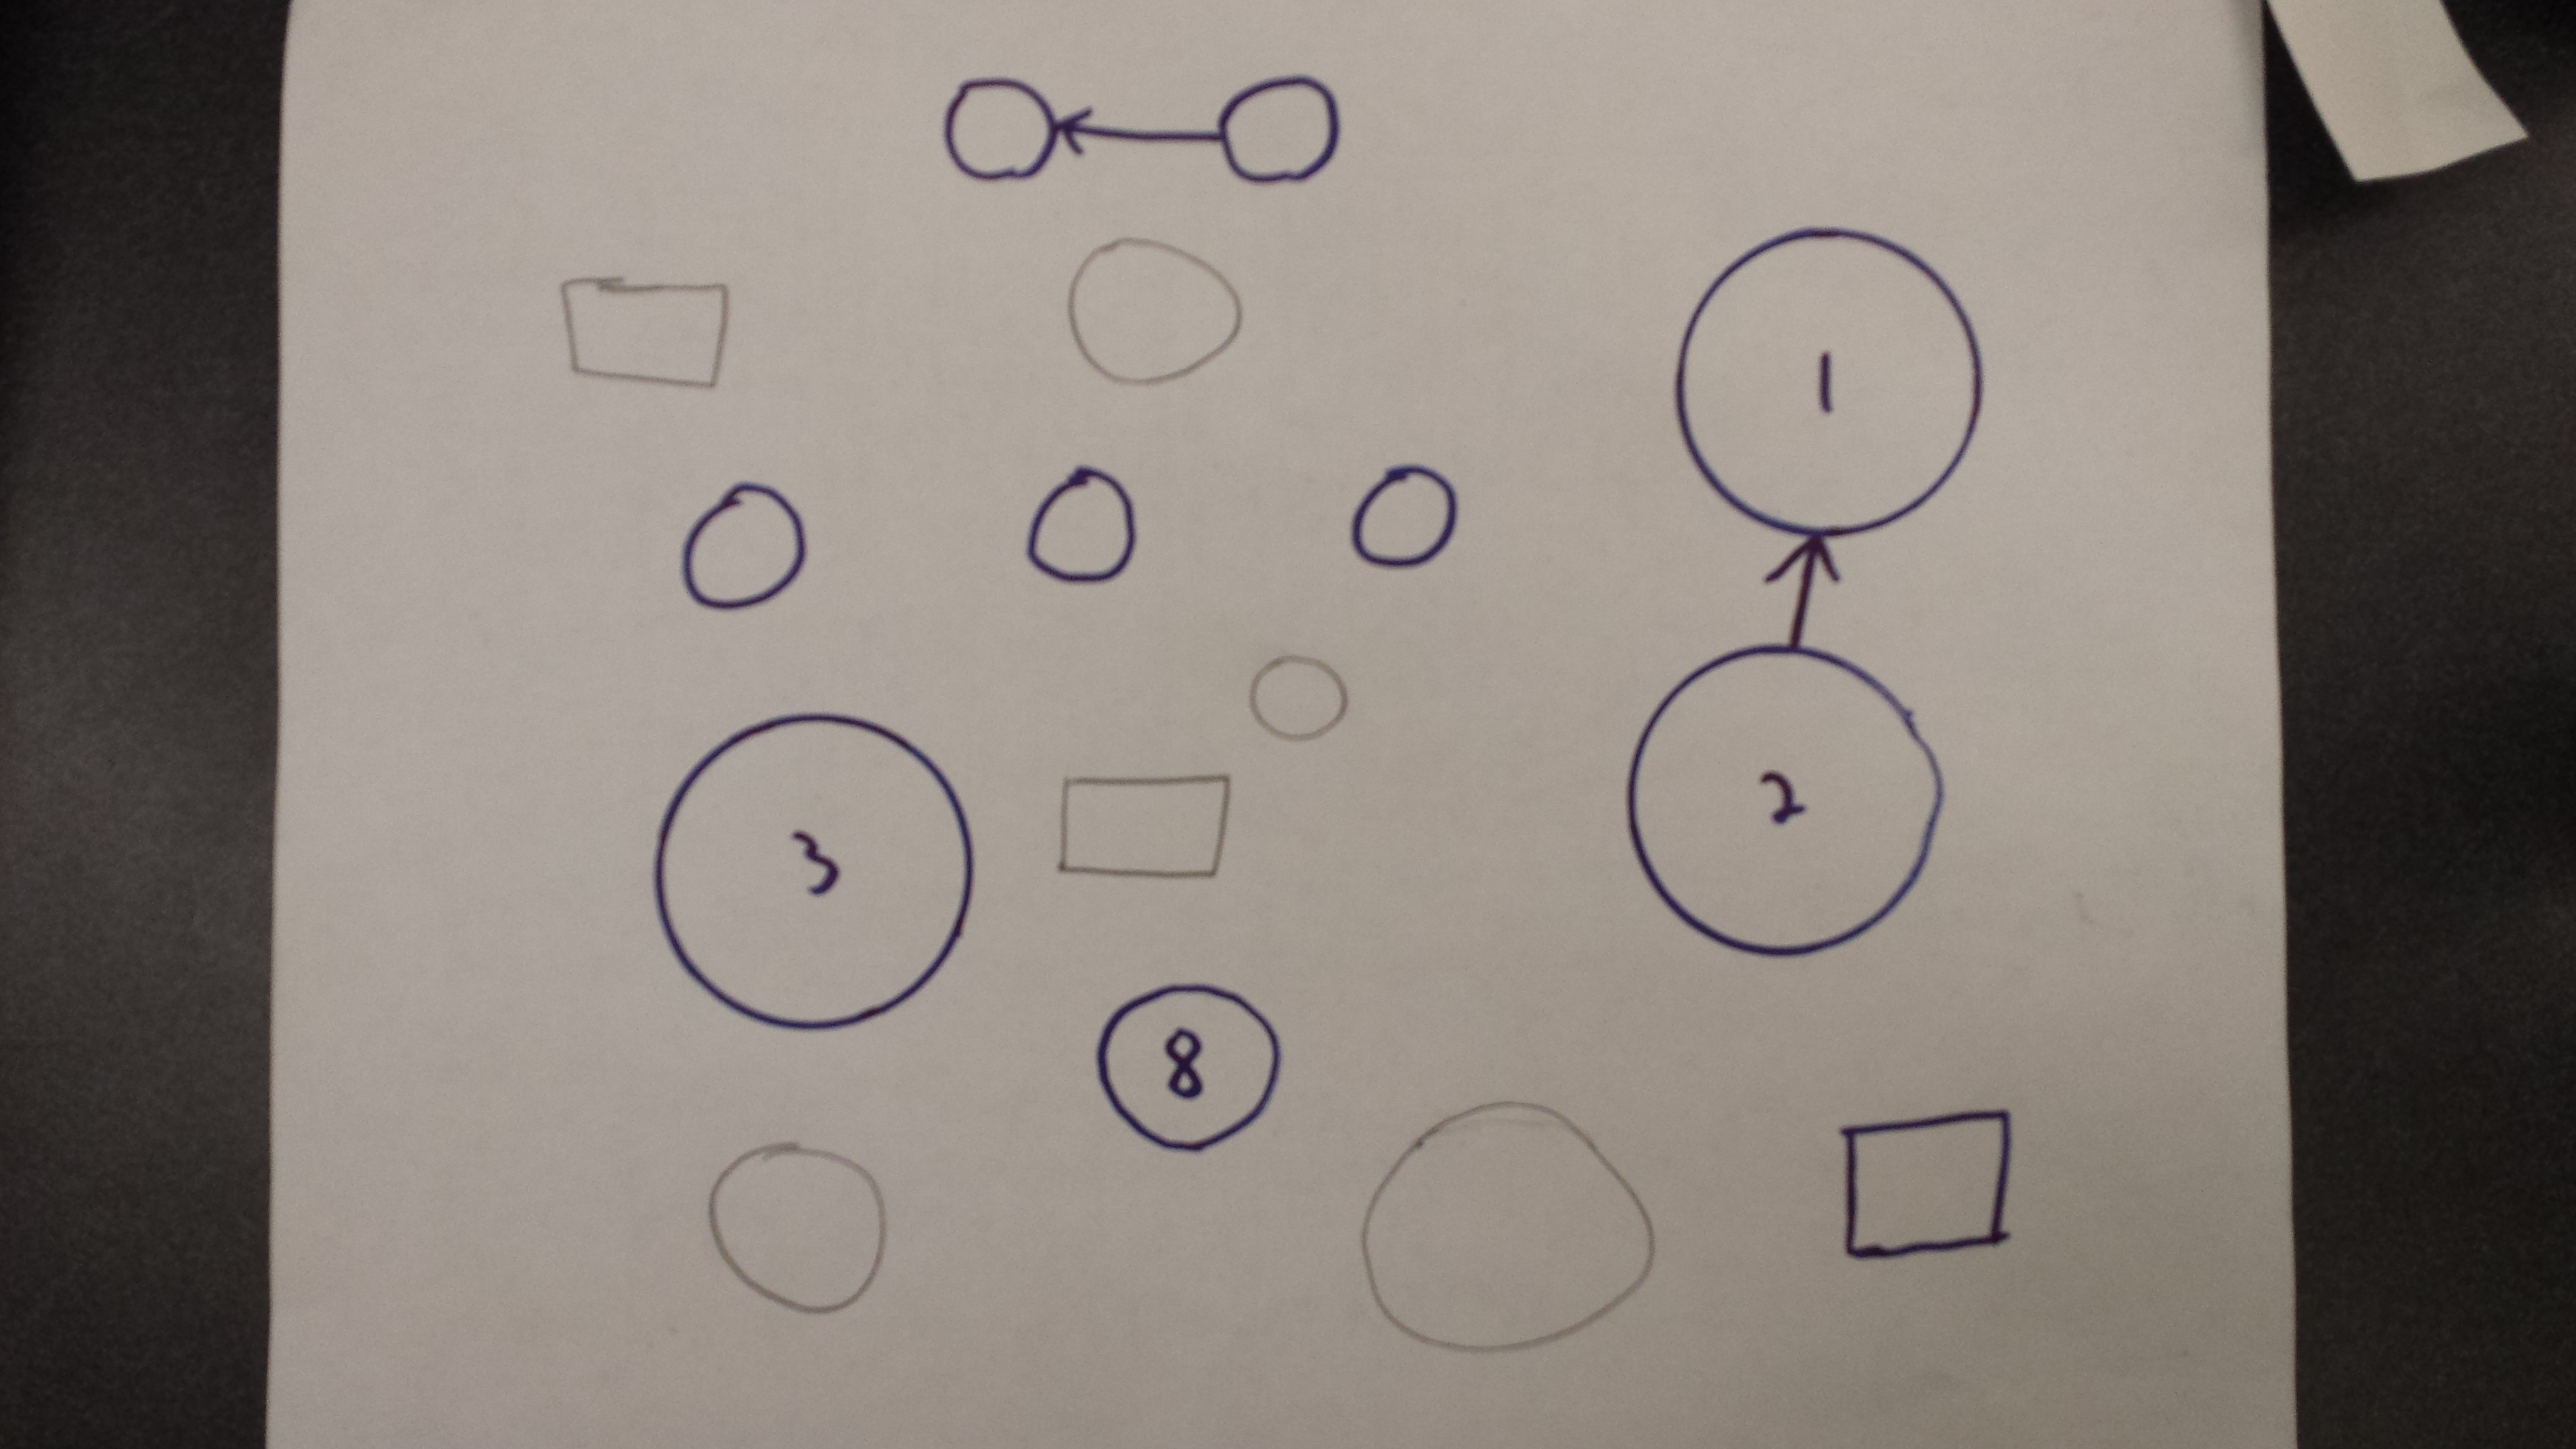 1
2
3
8